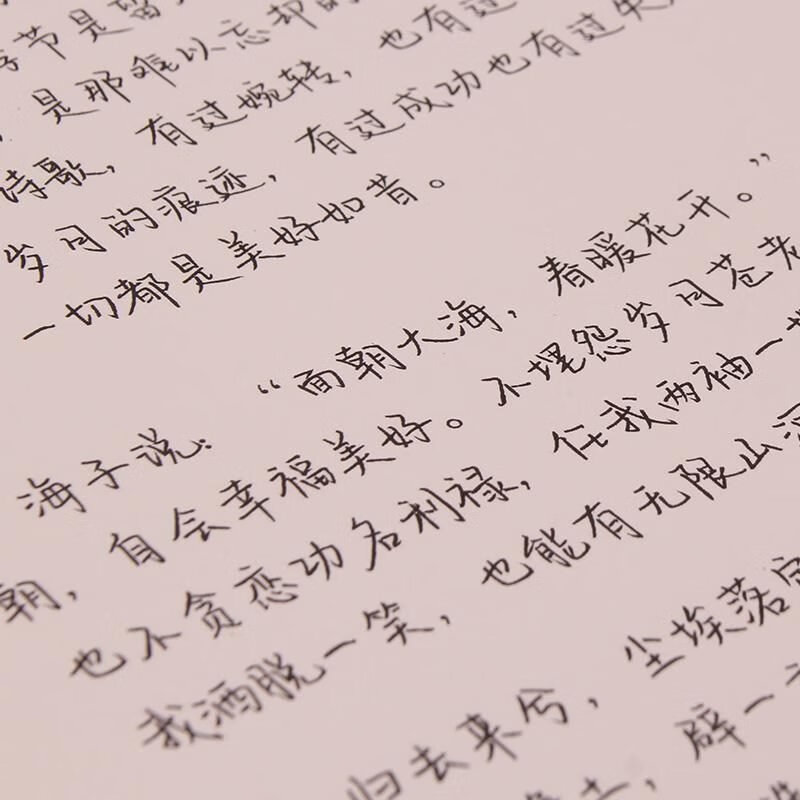 季节是留
，是那难以忘却的
诗歌，有过婉转，也有过
岁月的痕迹，有过成功也有过失
一切都是美好如昔。
海子说：“面朝大海，春暖花开。”
朝，自会幸福美好。不埋怨岁月苍老
也不贪恋功名利禄，任我两袖一
我洒脱一笑，也能有无限山
归去来兮，尘埃落定
土，辟一